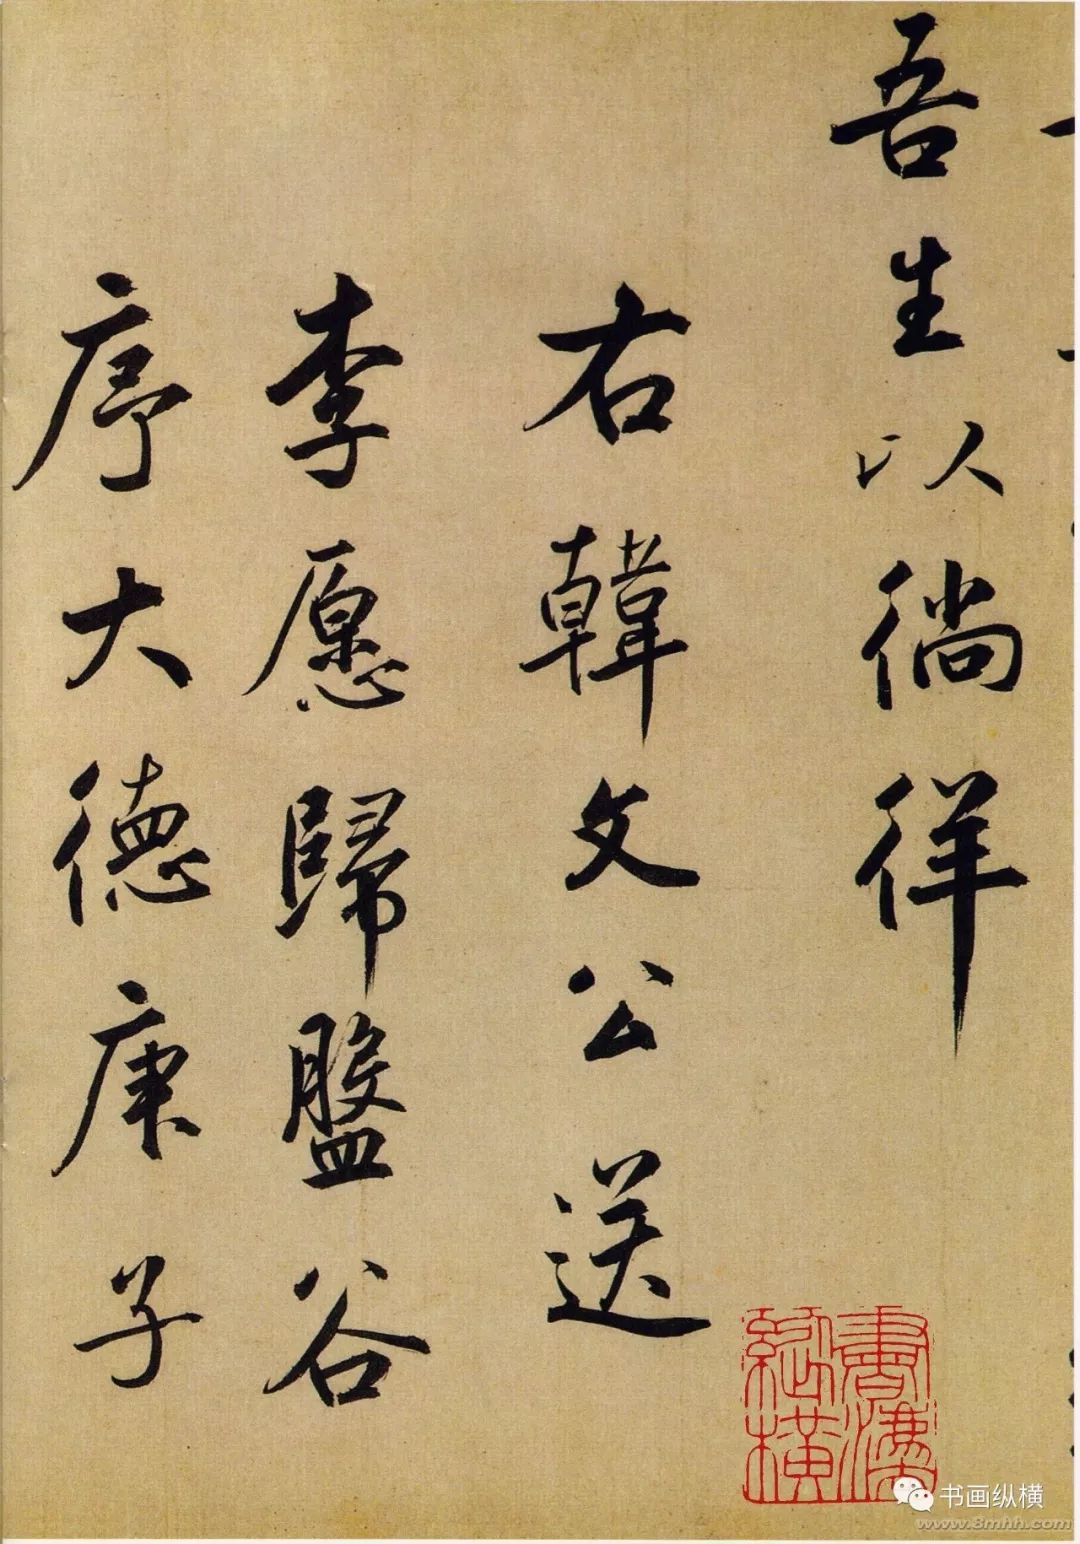 吾生以徜徉
右韓文公送
李愿歸盤谷
序大德庚子
书画纵横
www.8mhh.com